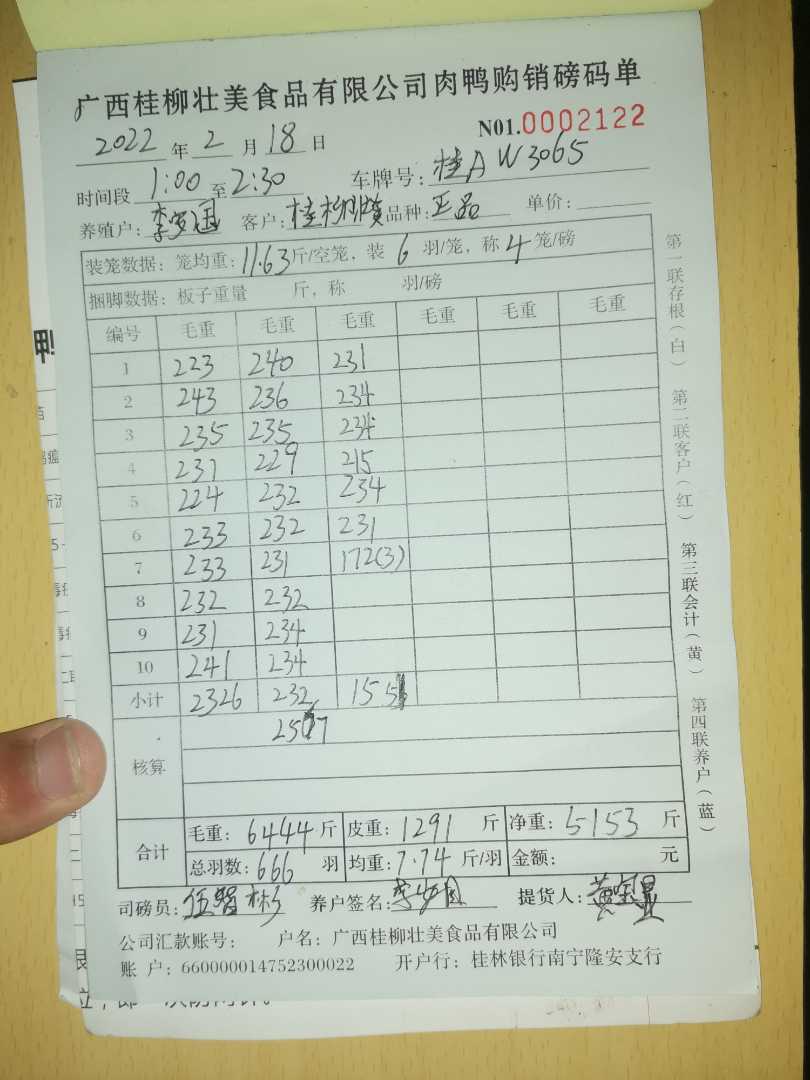 广西桂柳壮美食品有限公司肉鸭购销磅码单
N01.0002122
2022年2月18日
时间段1:00至2:30 车牌号:桂A W3065
养殖户:李 客户:桂柳 品种:正品 单价:
装笼数据:笼均重:11.63斤/空笼,装6羽/笼,称4笼/磅
捆脚数据:板子重量 斤,称 羽/磅
编号 毛重 毛重 毛重 毛重 毛重 毛重
1 223 240 231
2 243 236 234
3 235 235 234
4 231 229 215
5 224 232 234
6 233 232 231
7 233 231 172(3)
8 232 232
9 231 234
10 241 234
小计 2326 232 155
核算
合计 毛重:6444斤 皮重:1291斤 净重:5153斤
总羽数:666羽 均重:7.74斤/羽 金额: 元
司磅员:伍 养户签名:李 提货人:黄
公司汇款账号: 户名:广西桂柳壮美食品有限公司
账 户:660000014752300022 开户行:桂林银行南宁隆安支行
第一联存根(白) 第二联客户(红) 第三联会计(黄) 第四联养户(蓝)